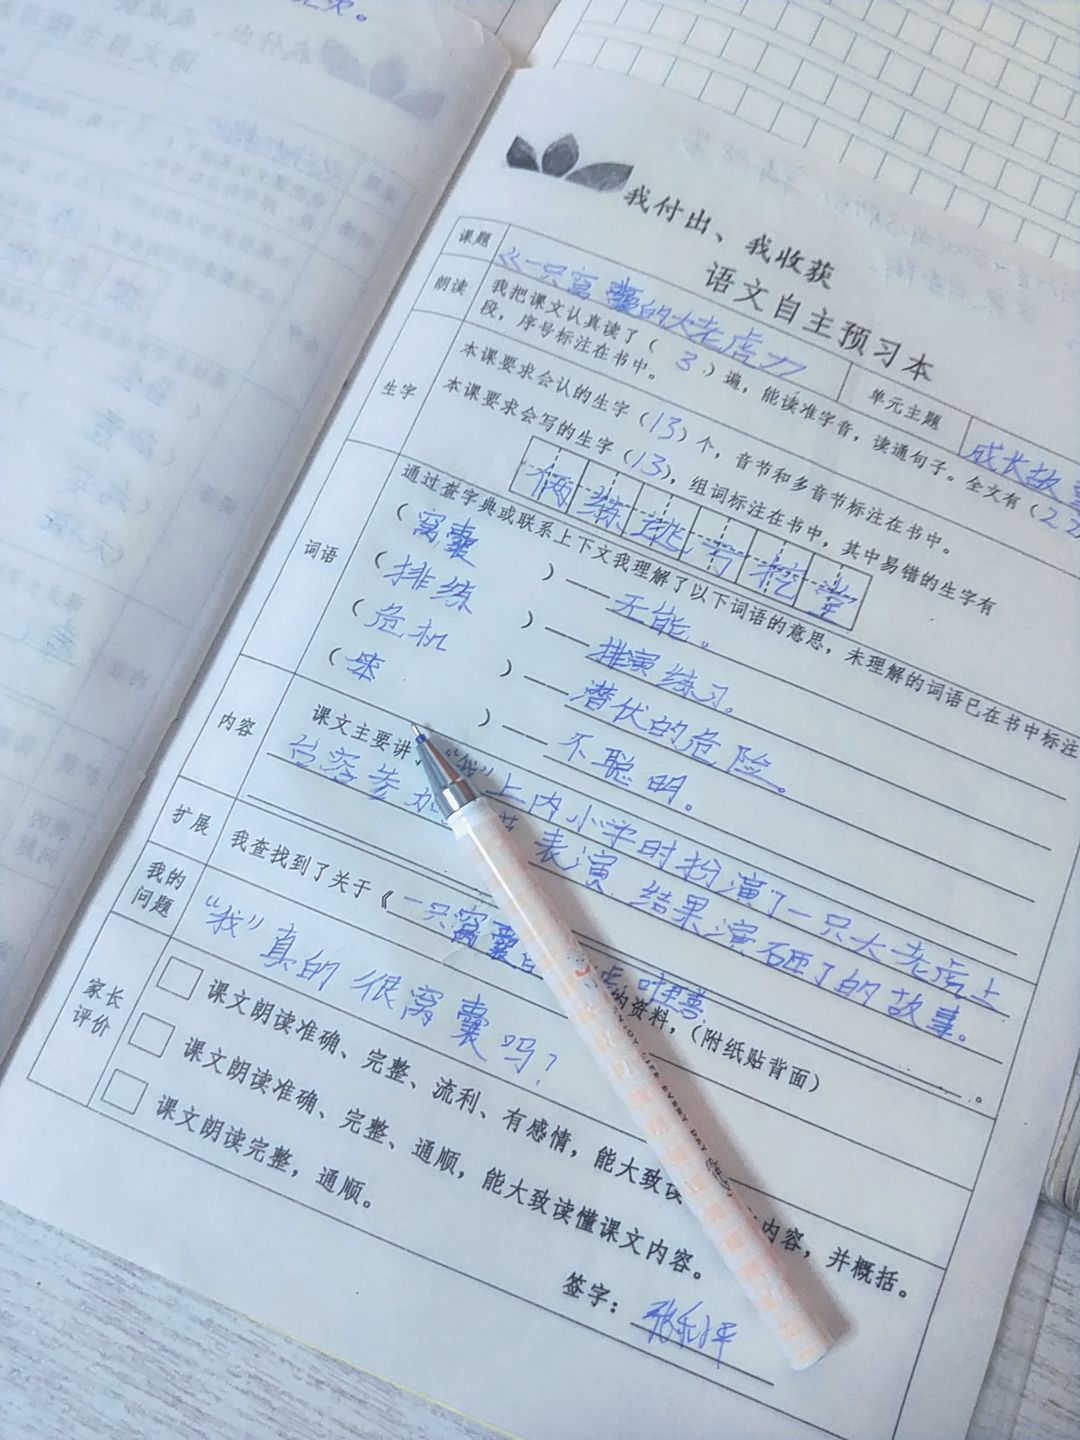 我付出、我收获
语文自主预习本
课题 《一只窝囊的大老虎》 单元主题 成长故事
朗读 我把课文认真读了(3)遍,能读准字音,读通句子。全文有(22
段,序号标注在书中。
生字 本课要求会认的生字(13)个,音节和多音节标注在书中。
本课要求会写的生字(13),组词标注在书中,其中易错的生字有
俩 练 逃 亏 挖 堂
词语 通过查字典或联系上下文我理解了以下词语的意思,未理解的词语已在书中标注
(窝囊)——无能。
(排练)——排演练习。
(危机)——潜伏的危险。
(笨)——不聪明。
内容 课文主要讲 “我”上内小学时扮演了一只大老虎上
台演参加 表演 结果演砸了的故事。
扩展 我查找到了关于《一只窝囊 的资料,(附纸贴背面)。
我的
问题 “我”真的很窝囊吗?
家长
评价 课文朗读准确、完整、流利、有感情,能大致读 内容,并概括。
课文朗读准确、完整、通顺,能大致读懂课文内容。
课文朗读完整,通顺。
签字:
ENJOY LIFE EVERY DAY